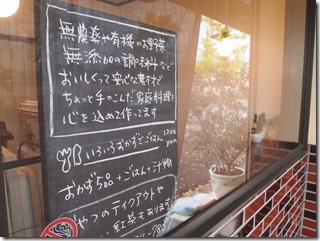 無農薬や有機のお野菜
無添加の調味料など
おいしくって安心な素材で
ちょっと手のこんだ家庭料理を
心を込めて作ってます
いろいろおかずとごはん 1200 yen
おかず5品+ごはん+汁物
おやつのテイクアウトや
紅茶もあります